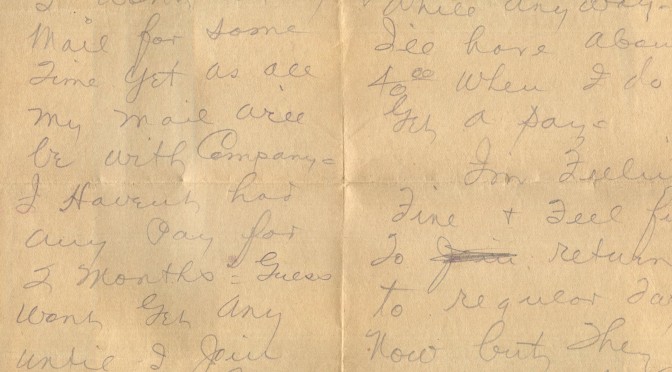 Mail for some
Time yet as all
My Mail will
be with Company =
I Havent had
any Pay for
2 Months = Guess
Wont Get Any
until I Join
While any way.
Ill have abou
40.00 When I do
Get a Pay =
Im Feelin
Fine + Feel f
To Join return
to regular Da
Now but They